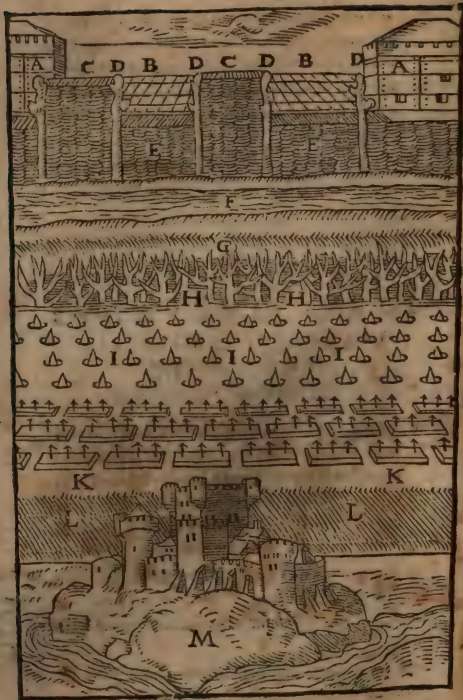 A C D B D C D B D A
E E
F
G
H H
I I I
K K
L L
M